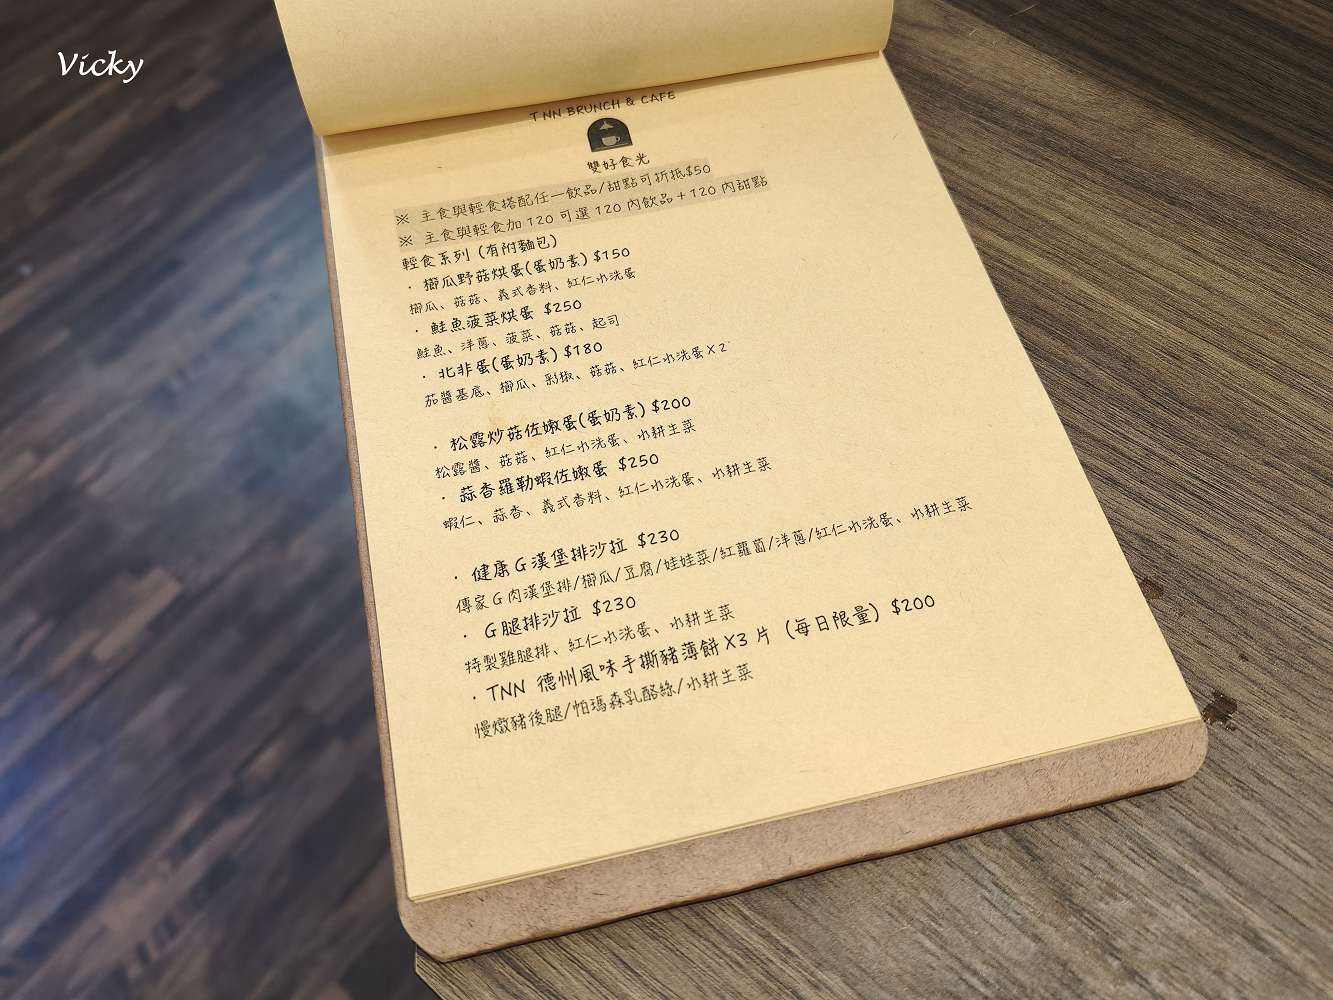 Vicky
TNN BRUNCH & CAFE
雙好食光
※ 主食與輕食搭配任一飲品/甜點可折抵$50
※ 主食與輕食加120可選120內飲品+120內甜點
輕食系列 (有附麵包)
· 櫛瓜野菇烘蛋(蛋奶素) $150
櫛瓜、菇菇、義式香料、紅仁水洗蛋
· 鮭魚菠菜烘蛋 $250
鮭魚、洋蔥、菠菜、菇菇、起司
· 北非蛋(蛋奶素) $180
茄醬基底、櫛瓜、彩椒、菇菇、紅仁水洗蛋X2
· 松露炒菇佐嫩蛋(蛋奶素) $200
松露醬、菇菇、紅仁水洗蛋、水耕生菜
· 蒜香羅勒蝦佐嫩蛋 $250
蝦仁、蒜香、義式香料、紅仁水洗蛋、水耕生菜
· 健康G漢堡排沙拉 $230
傳家G肉漢堡排/櫛瓜/豆腐/娃娃菜/紅蘿蔔/洋蔥/紅仁水洗蛋、水耕生菜
· G腿排沙拉 $230
特製雞腿排、紅仁水洗蛋、水耕生菜
· TNN 德州風味手撕豬薄餅X3 片 (每日限量) $200
慢燉豬後腿/帕瑪森乳酪絲/水耕生菜